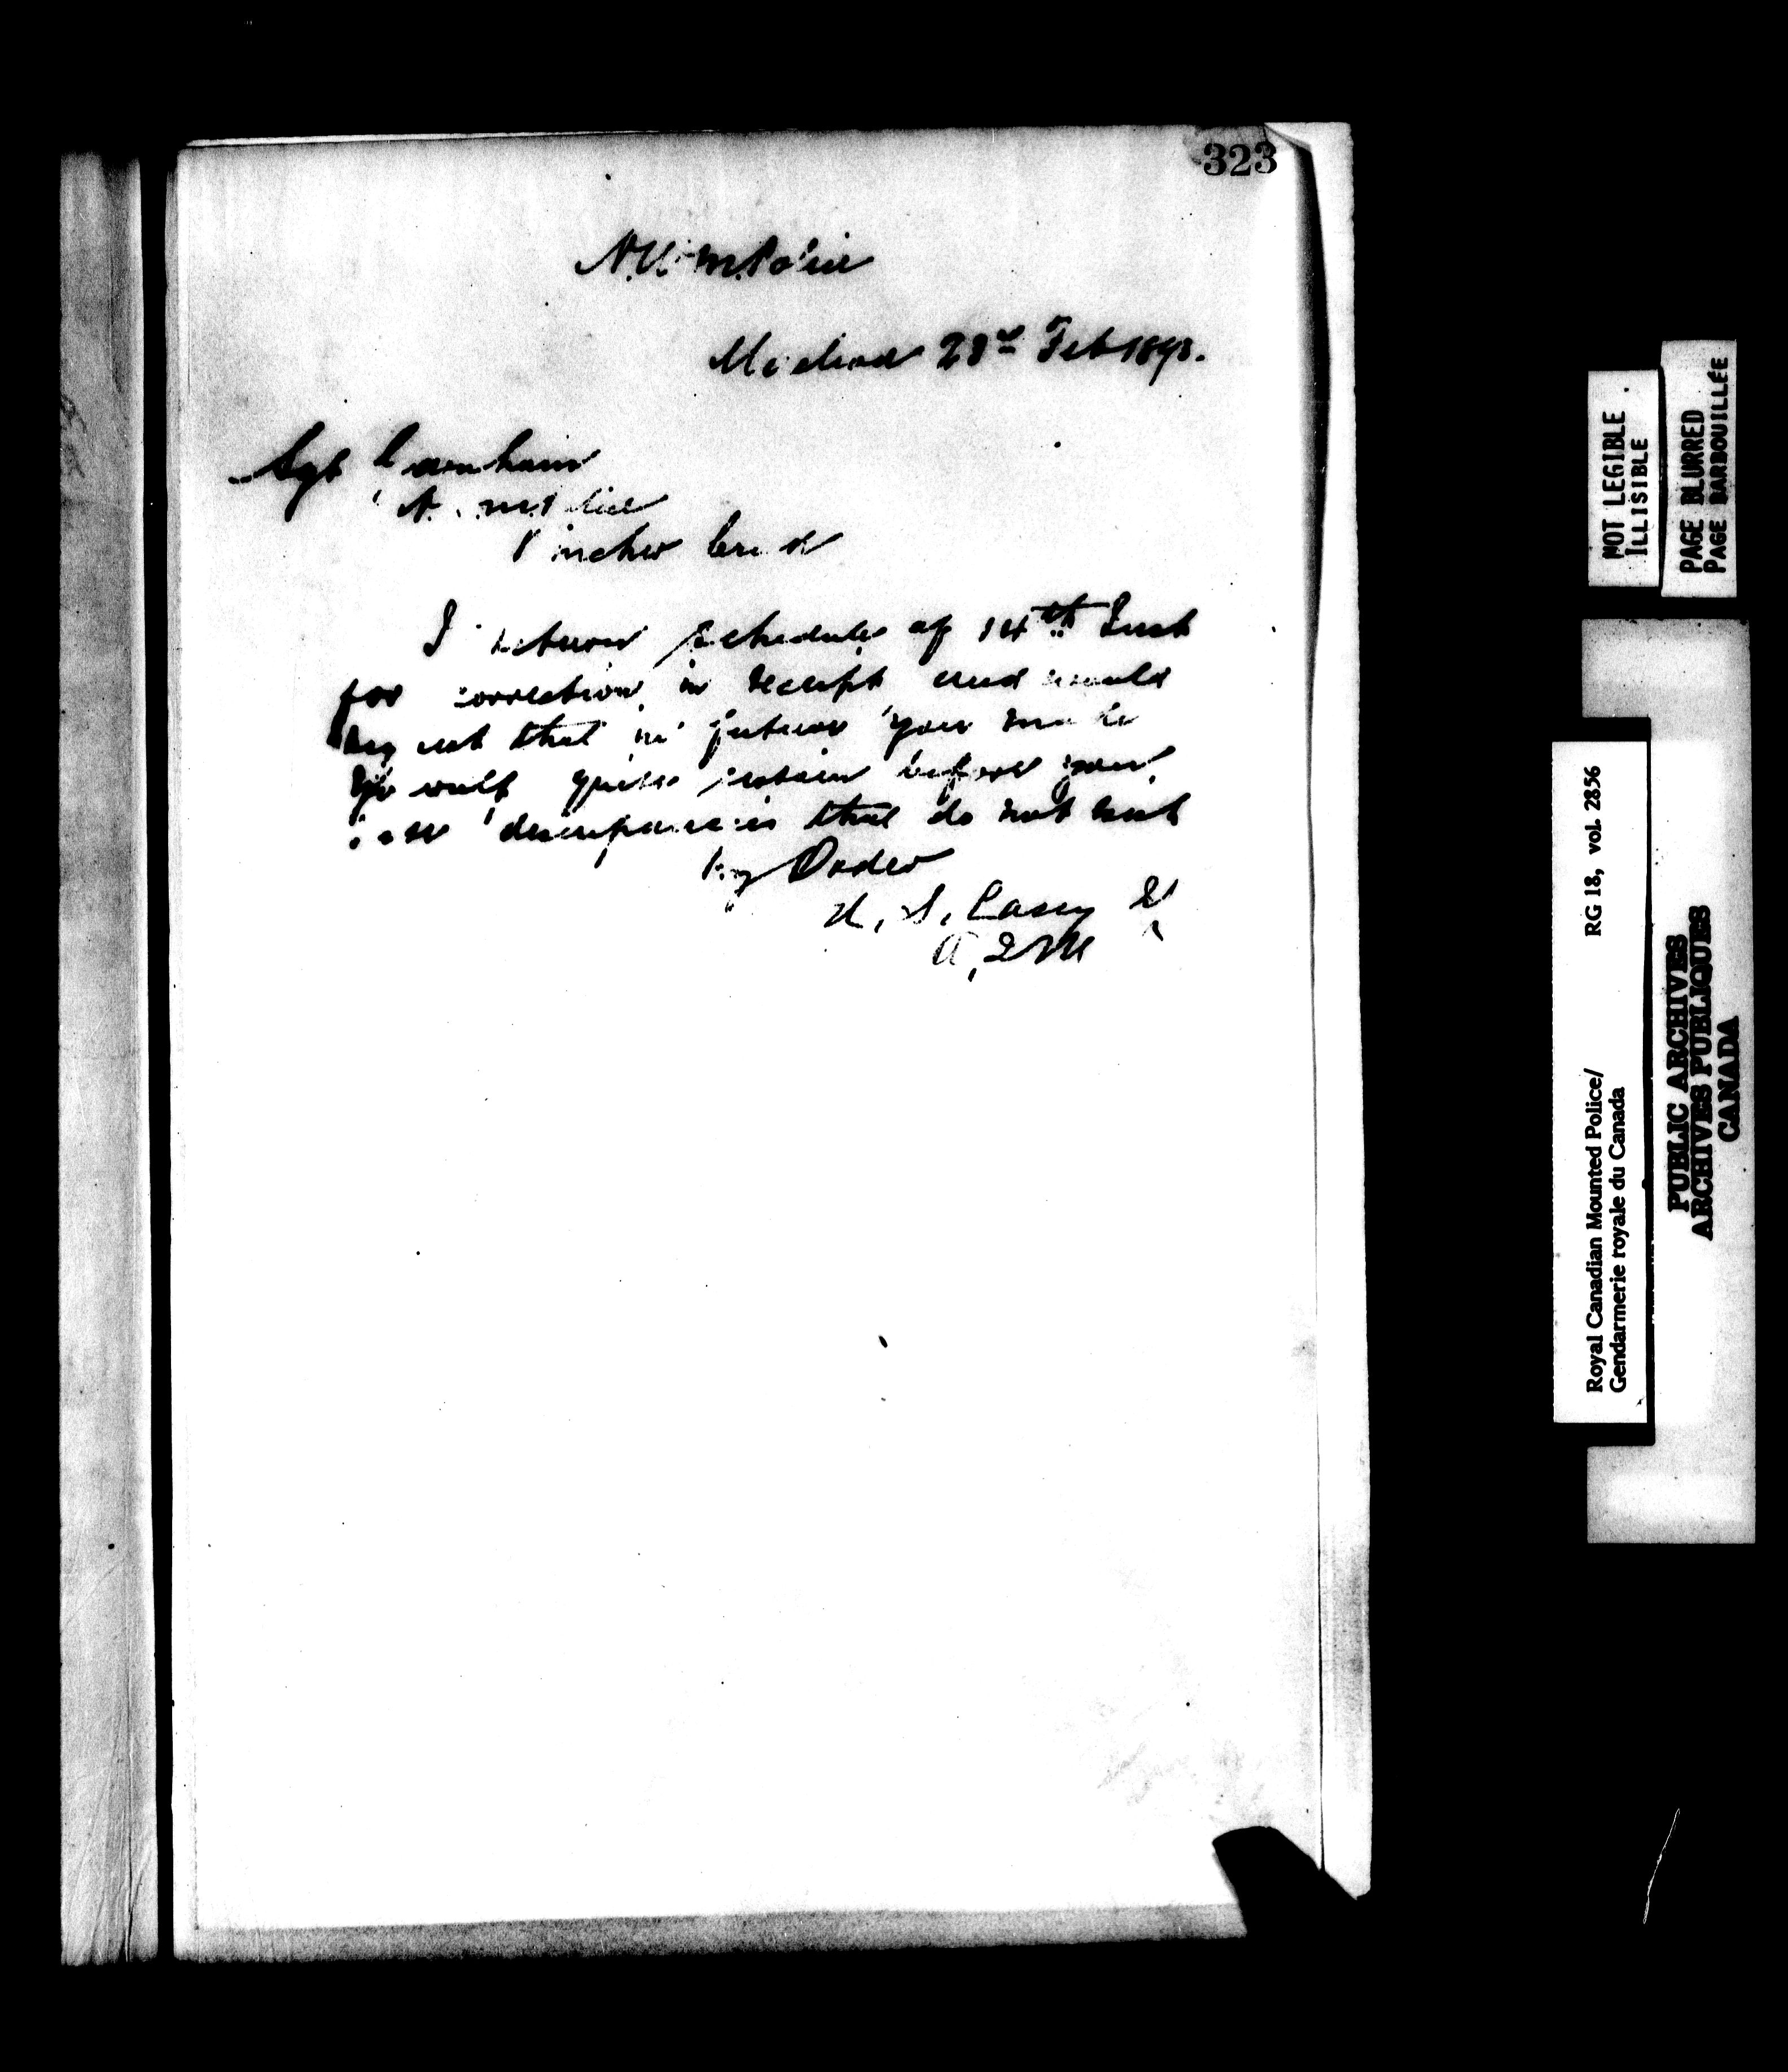 323
N.W.M.Police
Macleod 23rd Feb 1893.
Sgt
Police
Pincher Creek
I return schedule of 14th Inst
for correction in receipt and would
request that in future you make
quite certain before you
discrepancies that do not exist
By Order
H. S. Casey
A, QM
NOT LEGIBLE
ILLISIBLE
PAGE BLURRED
PAGE BARBOUILLÉE
RG 18, vol. 2856
Royal Canadian Mounted Police/
Gendarmerie royale du Canada
PUBLIC ARCHIVES
ARCHIVES PUBLIQUES
CANADA